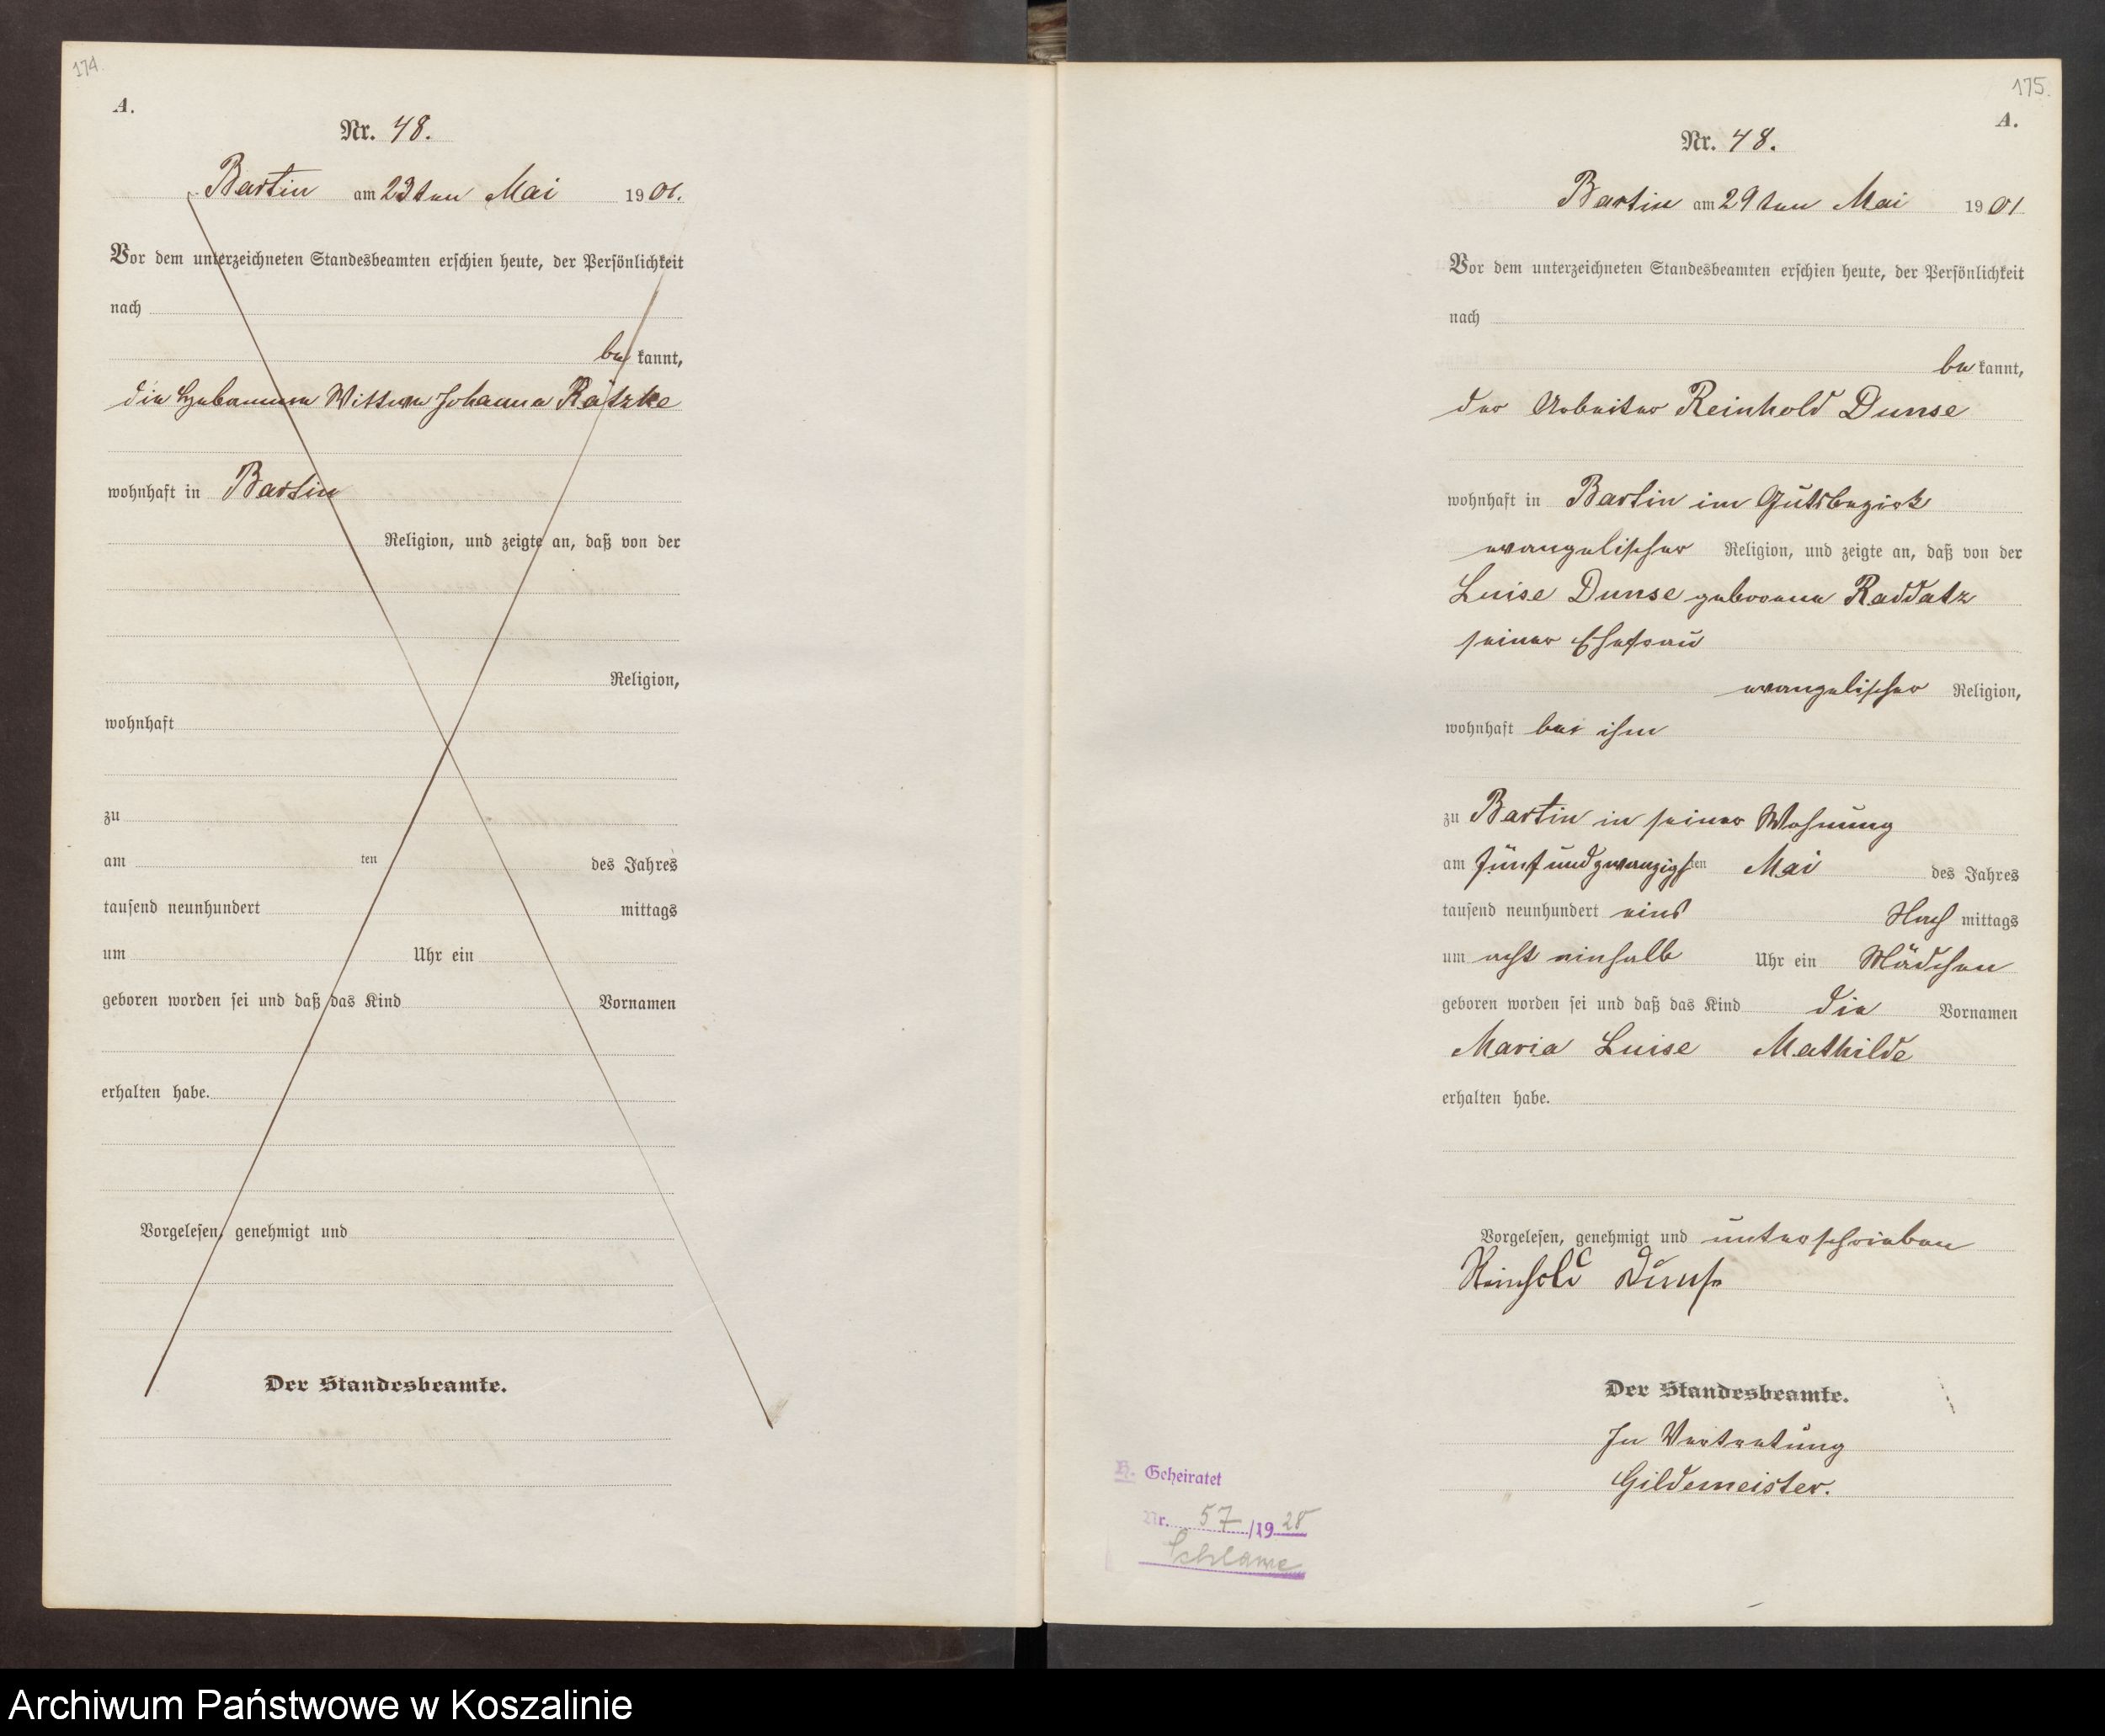 174.
A.
Nr. 48.
Bartin am 23ten Mai 1901.
Vor dem unterzeichneten Standesbeamten erschien heute, der Persönlichkeit
nach
be kannt,
die Hebamme Wittwe Johanna Rätzke
wohnhaft in Bartin
Religion, und zeigte an, daß von der
Religion,
wohnhaft
zu
am ten des Jahres
tausend neunhundert mittags
um Uhr ein
geboren worden sei und daß das Kind Vornamen
erhalten habe.
Vorgelesen, genehmigt und
Der Standesbeamte.
175.
A.
Nr. 48.
Bartin am 29ten Mai 1901
Vor dem unterzeichneten Standesbeamten erschien heute, der Persönlichkeit
nach
be kannt,
der Arbeiter Reinhold Dunse
wohnhaft in Bartin im Gutsbezirk
evangelischer Religion, und zeigte an, daß von der
Luise Dunse geborene Raddatz
seiner Ehefrau
evangelischer Religion,
wohnhaft bei ihm
zu Bartin in seiner Wohnung
am fünfundzwanzigsten Mai des Jahres
tausend neunhundert eins Nach mittags
um acht einhalb Uhr ein Mädchen
geboren worden sei und daß das Kind die Vornamen
Maria Luise Mathilde
erhalten habe.
Vorgelesen, genehmigt und unterschrieben
Reinhold Dunse
Der Standesbeamte.
In Vertretung
Gildemeister.
H. Geheiratet
Nr. 57/1928
Schlawe
Archiwum Państwowe w Koszalinie